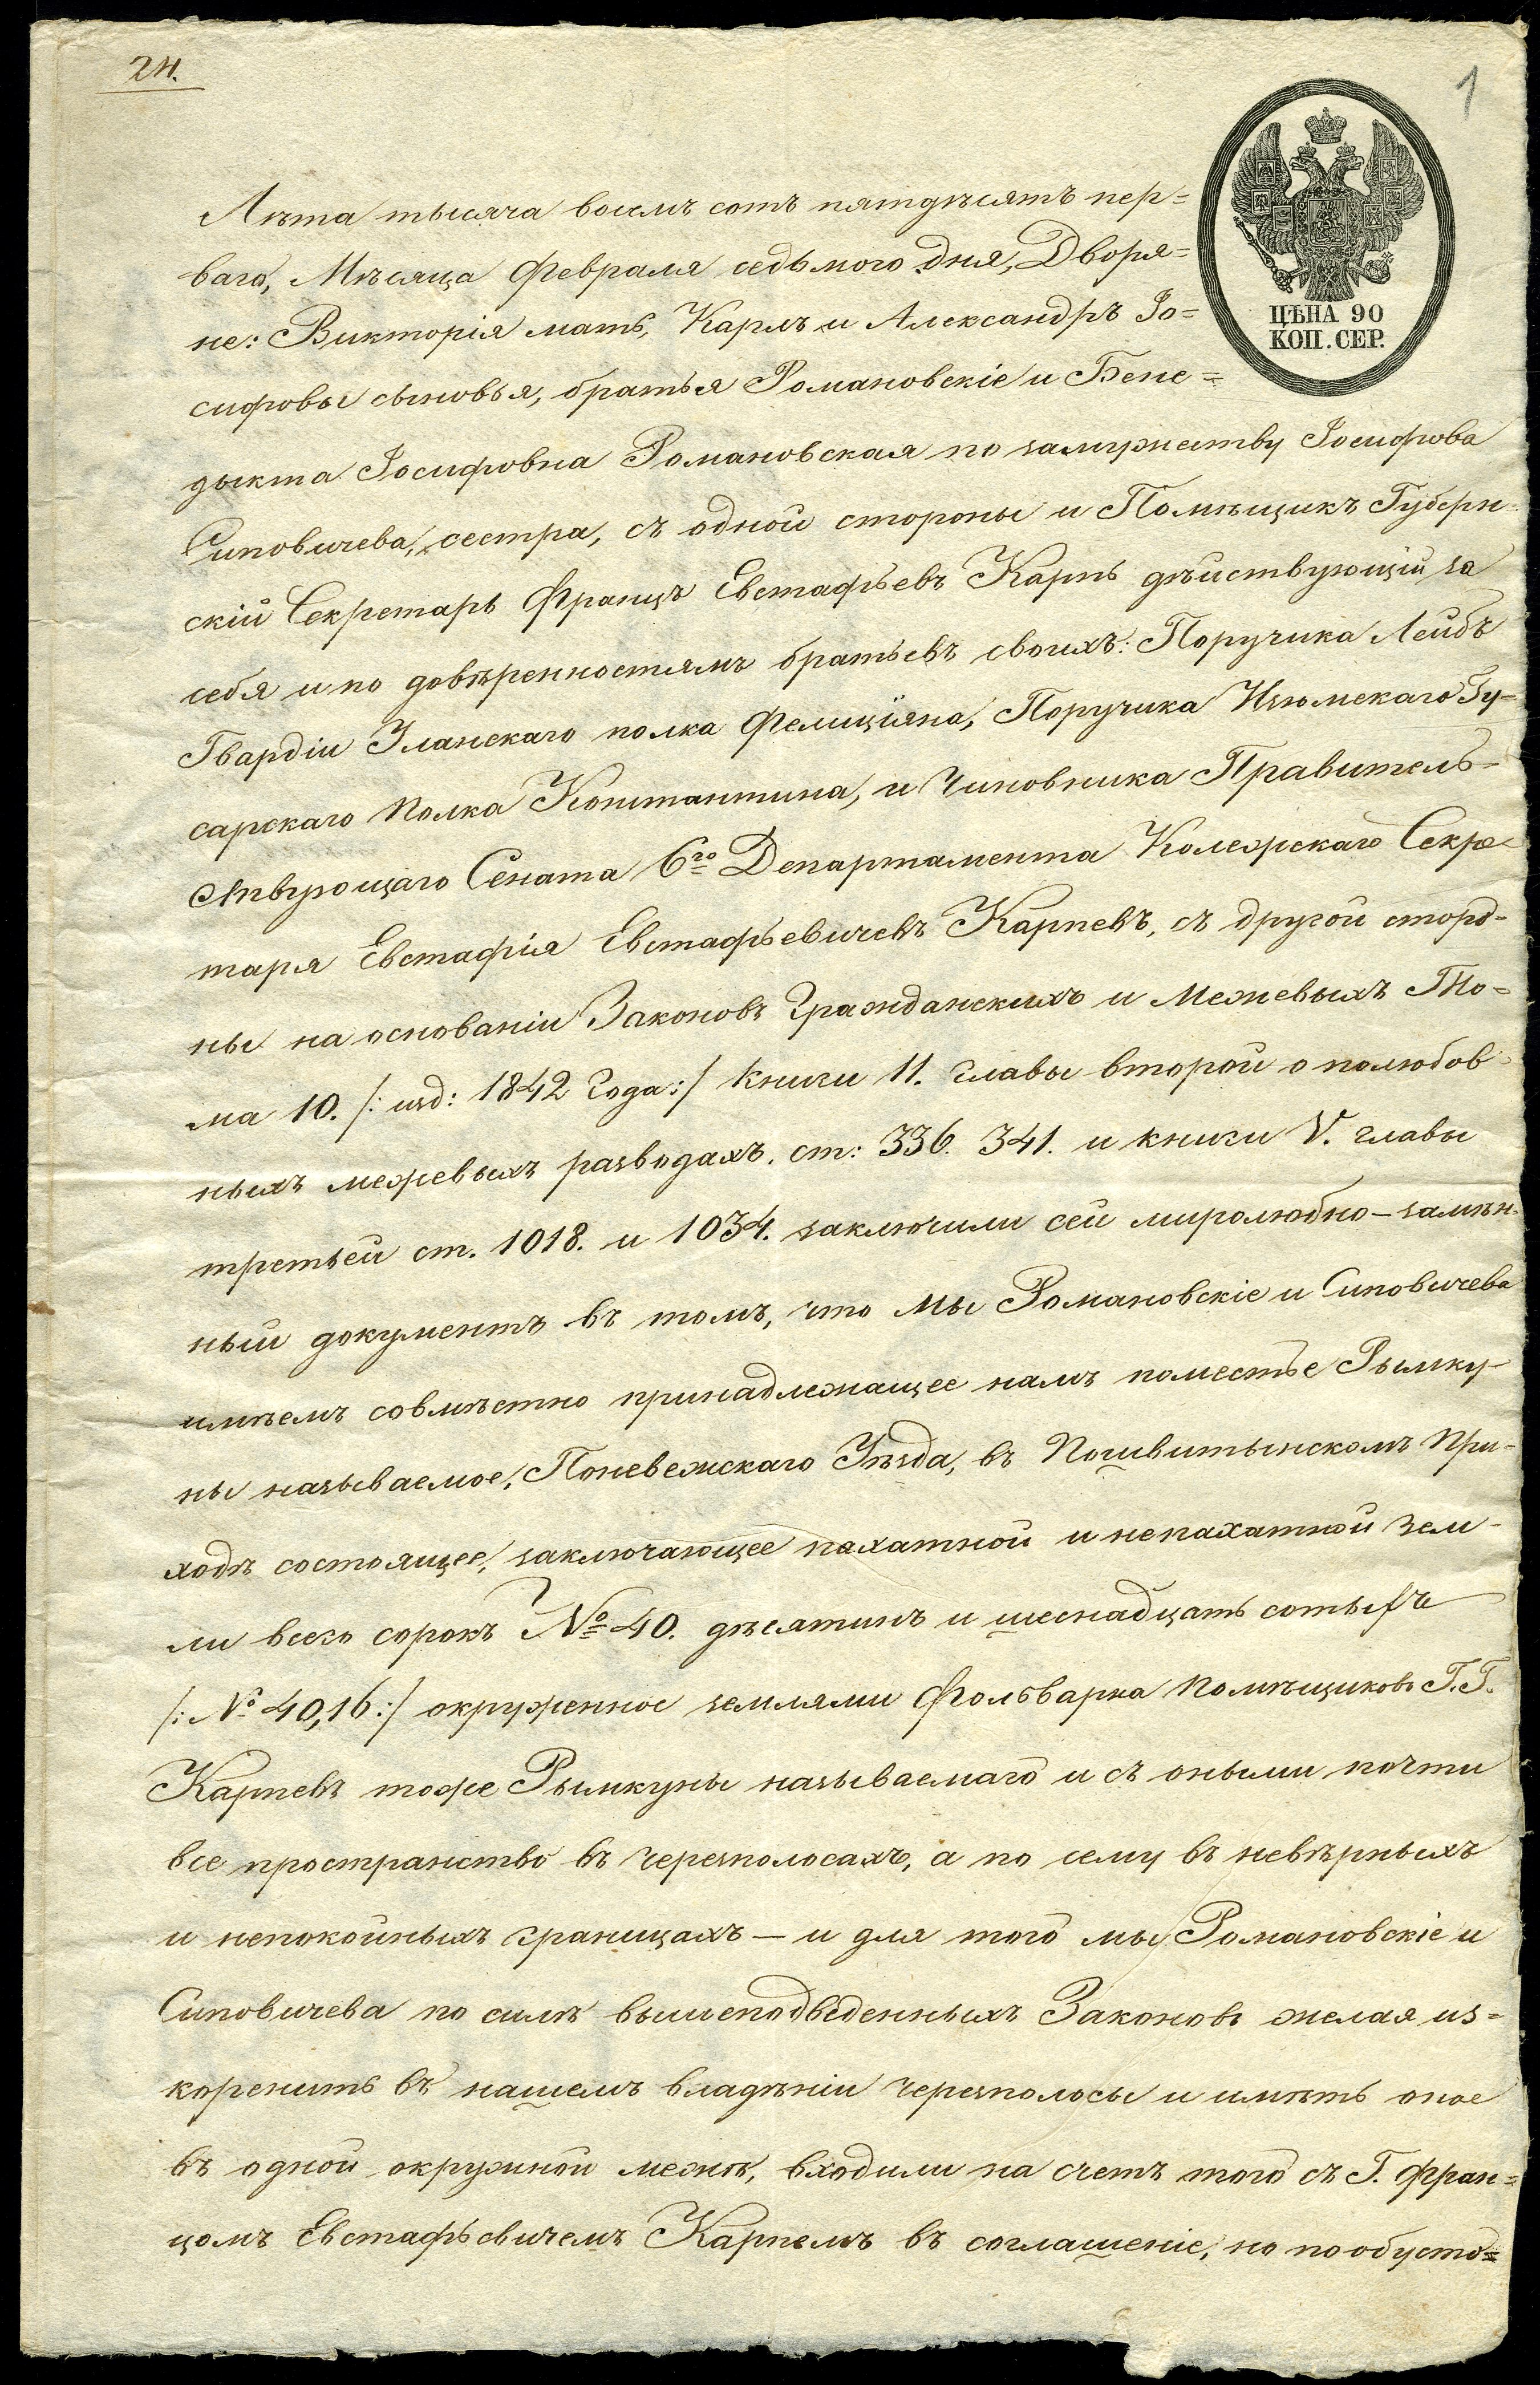 24.
1
ЦѢНА 90
КОП. СЕР.
Лѣта тысяча восемъ сотъ пятдѣсятъ пер=
ваго, Мѣсяца Февраля седьмого дня, Дворя=
не: Викторія мать, Карлъ и Александръ Іо=
сифовы сыновья, братья Романовскіе и Бене=
дыкта Іосифовна Романовская по замужеству Іосифова
Сиповичева, сестра, съ одной стороны и Помѣщикъ Губерн=
скій Секретарь Францъ Евстафьевъ Карпь дѣйствующій за
себя и по довѣренностямъ братьевъ своихъ: Поручика Лейбъ
Гвардіи Уланскаго полка Фелиціяна, Поручика Изюмскаго Гу=
сарскаго Полка Константина, и Чиновника Правитель-
ствующаго Сената 6го Департамента Колежскаго Секре=
таря Евстафія Евстафьевичевъ Карпевъ, съ другой сторо=
ны на основаніи Законовъ Гражданскихъ и Межевыхъ То=
ма 10. /: изд: 1842 Года:/ Книги 11. главы второй о полюбов=
ныхъ межевыхъ разводахъ. ст: 336. 341. и книги V. главы
третьей ст. 1018. и 1034. заключили сей миролюбно-замѣн=
ный документъ въ томъ, что Мы Романовскіе и Сиповичева
имѣемъ совмѣстно принадлежащее намъ поместье Рымку-
ны называемое, Поневежскаго Уѣзда, въ Пошвитынскомъ При-
ходѣ состоящее, заключающее пахатной и непахатной Зем-
ли всего сорокъ № 40. дѣсятинъ и шеснадцать сотыхъ
/: № 40,16:/ окруженное землями Фольварка Помѣщиковъ Г.Г.
Карпевъ тоже Рымкуны называемаго и съ оными почти
все пространство въ черезполосахъ, а по сему въ невѣрныхъ
и непокойныхъ границахъ — и для того мы Романовскіе и
Сиповичева по силѣ вышеподведенныхъ Законовъ желая из=
коренить въ нашемъ владѣніи черезполосы и имѣть оное
въ одной окружной межѣ, входили на счетъ того съ Г. Фран=
цомъ Евстафьевичемъ Карпемъ въ соглашеніе, но по обусто=